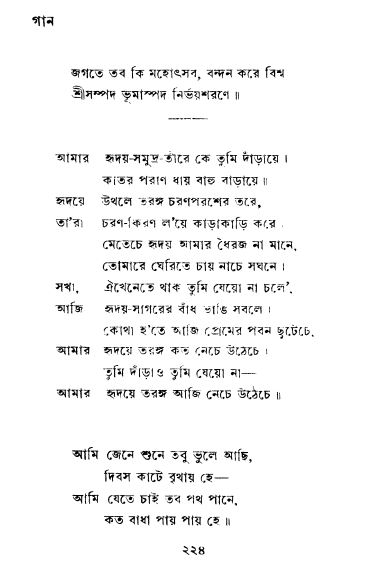 গান
জগতে তব কি মহোৎসব, বন্দন করে বিশ্ব
শ্রীসম্পদ ভূমাস্পদ নির্ভয়শরণে॥
আমার হৃদয়-সমুদ্র-তীরে কে তুমি দাঁড়ায়ে।
কাতর পরাণ ধায় বাহু বাড়ায়ে॥
হৃদয়ে উথলে তরঙ্গ চরণপরশের তরে,
তা'রা চরণ-কিরণ ল'য়ে কাড়াকাড়ি করে।
মেতেচে হৃদয় আমার ধৈরজ না মানে,
তোমারে ঘেরিতে চায় নাচে সঘনে।
সখা, ঐখেনেতে থাক তুমি যেয়ো না চলে',
আজি হৃদয়-সাগরের বাঁধ ভাঙি সবলে।
কোথা হ'তে আজি প্রেমের পবন ছুটেচে,
আমার হৃদয়ে তরঙ্গ কত নেচে উঠেচে।
তুমি দাঁড়াও তুমি যেয়ো না—
আমার হৃদয়ে তরঙ্গ আজি নেচে উঠেচে॥
আমি জেনে শুনে তবু ভুলে আছি,
দিবস কাটে বৃথায় হে—
আমি যেতে চাই তব পথ পানে,
কত বাধা পায় পায় হে॥
২২৪